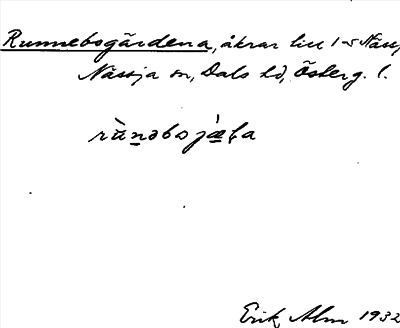 Runnebogärdena, åkrar till 1-5 Näss,
Nässja sn, Dals hd, Österg. l.
rùnəbo jæ̀ɽa
Erik Alm 1932